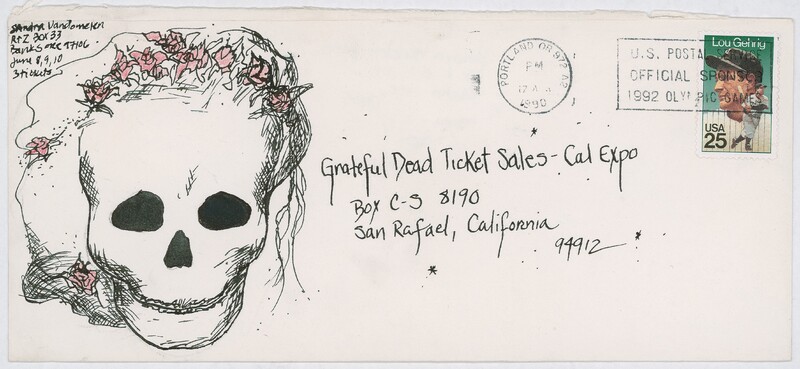 Sandra Vandometer
Rt 2 Box 33
Banks ore 97106
June 8, 9, 10
3 tickets
PORTLAND OR 972
PM
1990
U.S. POSTAL
OFFICIAL SPONSOR
1992 OLYMPIC GAMES
Lou Gehrig
USA
25
Grateful Dead Ticket Sales - Cal Expo
Box C-S 8190
San Rafael, California
94912